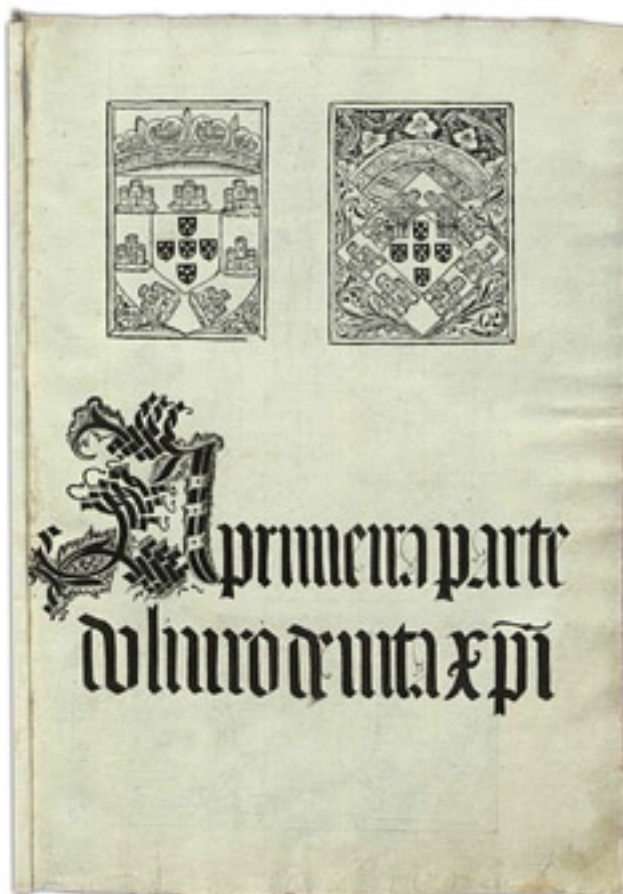 A primeira parte
do liuro de vita xp̄i